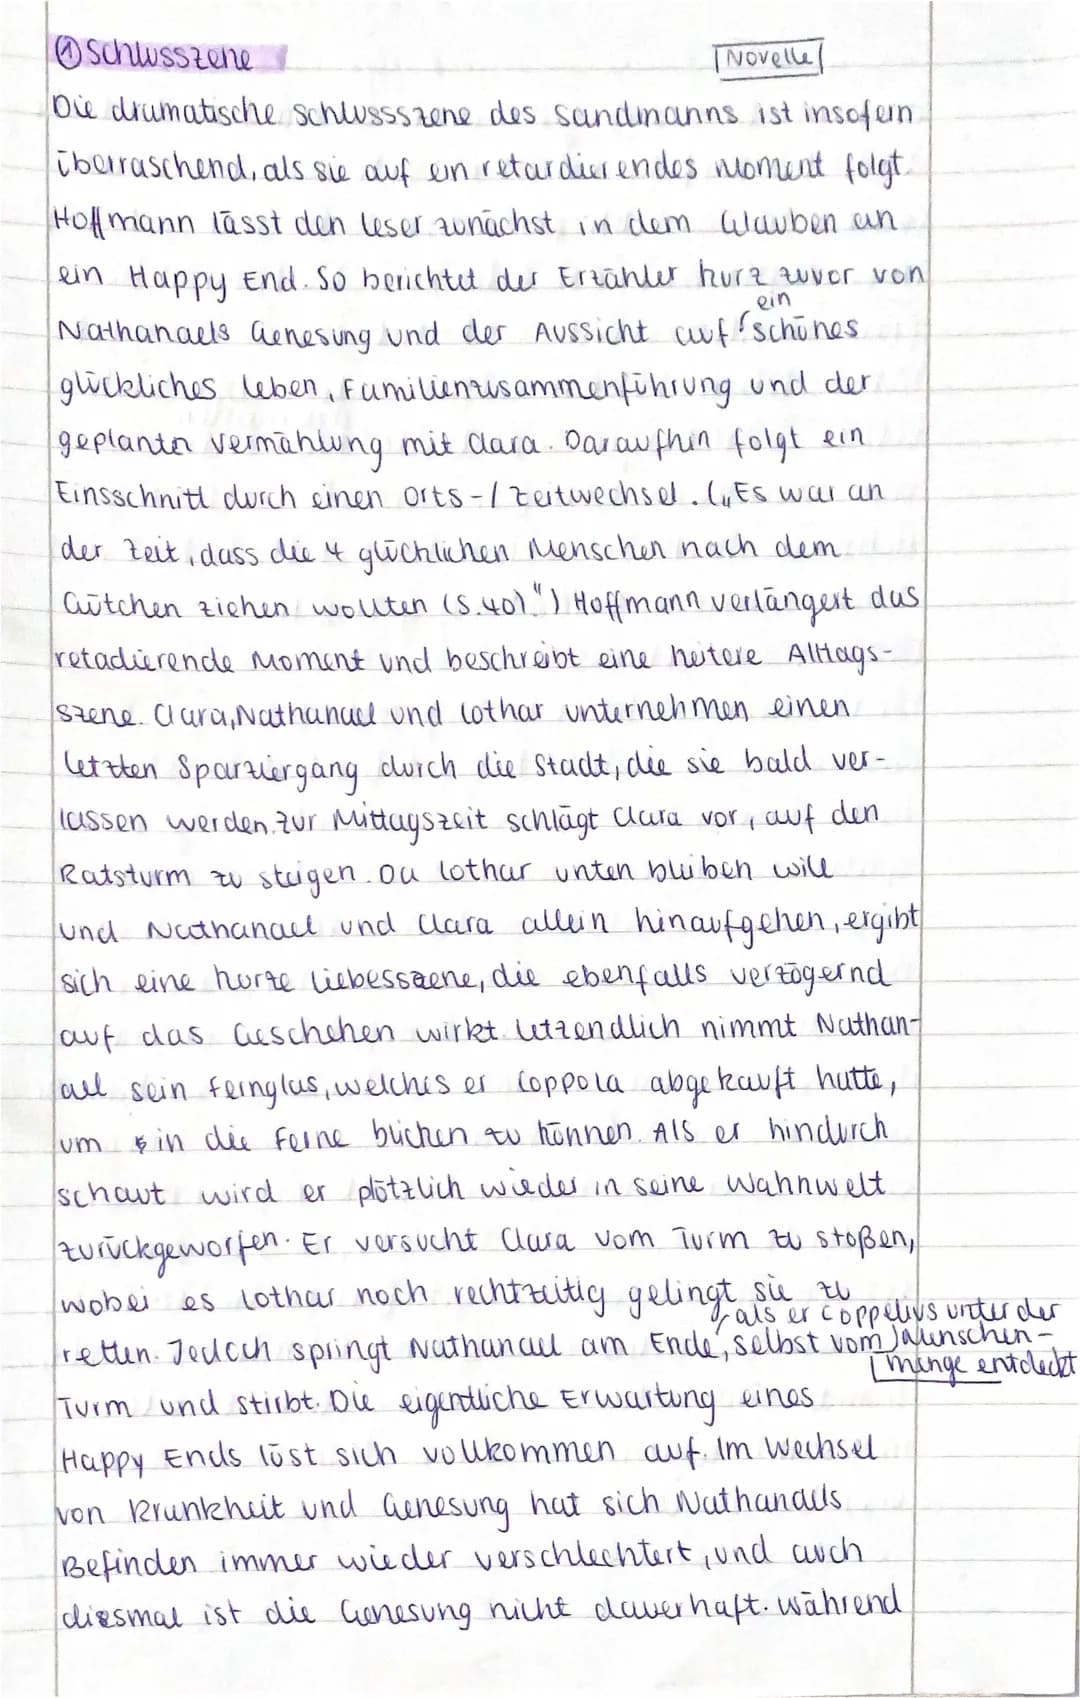 ① Schlusszene
Novelle
Die dramatische Schlussszene des Sandmanns ist insofern
überraschend, als sie auf ein retardierendes Moment folgt.
Hoffmann lässt den Leser zunächst in dem Glauben an
ein Happy End. So berichtet der Erzähler kurz zuvor von
Nathanaels Genesung und der Aussicht auf ein schönes
glückliches Leben, Familienzusammenführung und der
geplanten Vermählung mit Clara. Daraufhin folgt ein
Einsschnitt durch einen Orts-/Zeitwechsel. („Es war an
der Zeit, dass die 4 glücklichen Menschen nach dem
Gütchen ziehen wollten (S.40).") Hoffmann verlängert das
retadierende Moment und beschreibt eine heitere Alltags-
szene. Clara, Nathanael und Lothar unternehmen einen
letzten Sparziergang durch die Stadt, die sie bald ver-
lassen werden. Zur Mittagszeit schlägt Clara vor, auf den
Ratsturm zu steigen. Da Lothar unten bleiben will
und Nathanael und Clara allein hinaufgehen, ergibt
sich eine kurze Liebesszene, die ebenfalls verzögernd
auf das Geschehen wirkt. Letzendlich nimmt Nathan-
ael sein Fernglas, welches er Coppola abgekauft hatte,
um in die Ferne blicken zu können. Als er hindurch
schaut wird er plötzlich wieder in seine Wahnwelt
zurückgeworfen. Er versucht Clara vom Turm zu stoßen,
wobei es Lothar noch rechtzeitig gelingt sie zu
retten. Jedoch springt Nathanael am Ende, als er Coppelius unter der Menschen-
menge entdeckt selbst vom
Turm und stirbt. Die eigentliche Erwartung eines
Happy Ends löst sich vollkommen auf. Im Wechsel
von Krankheit und Genesung hat sich Nathanaels
Befinden immer wieder verschlechtert, und auch
diesmal ist die Genesung nicht dauerhaft. Während